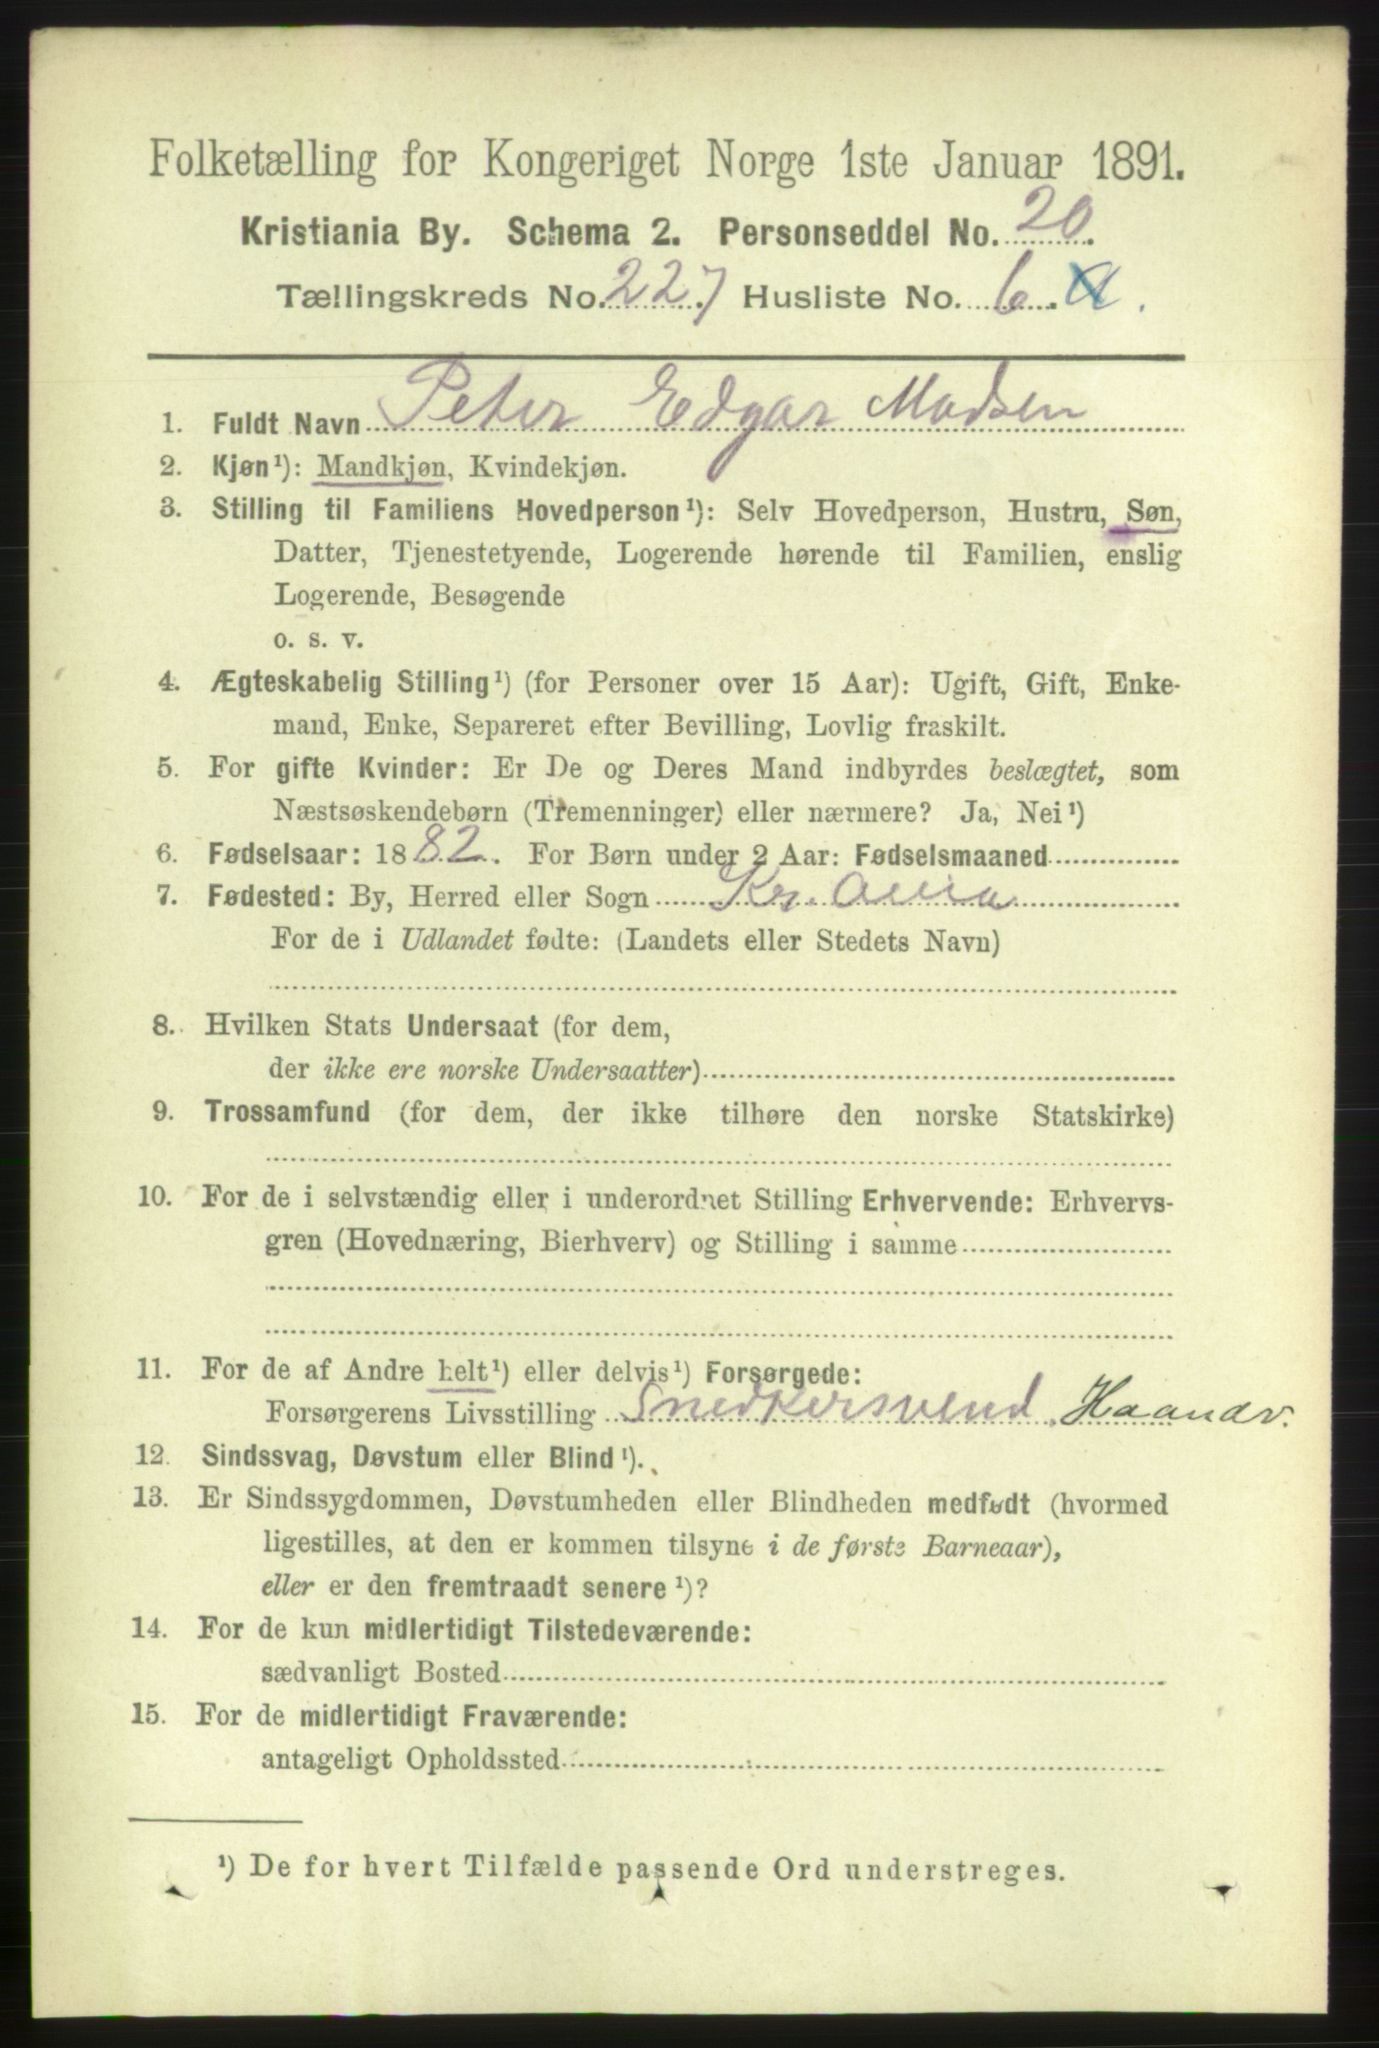 Folketælling for Kongeriget Norge 1ste Januar 1891.
Kristiania By. Schema 2. Personseddel No. 20.
Tællingskreds No. 227. Husliste No. 6. a.
1. Fuldt Navn Peter Edgar Madsen
2. Kjøn¹): Mandkjøn, Kvindekjøn.
3. Stilling til Familiens Hovedperson¹): Selv Hovedperson, Hustru, Søn,
Datter, Tjenestetyende, Logerende hørende til Familien, enslig
Logerende, Besøgende
o. s. v.
4. Ægteskabelig Stilling¹) (for Personer over 15 Aar): Ugift, Gift, Enke-
mand, Enke, Separeret efter Bevilling, Lovlig fraskilt.
5. For gifte Kvinder: Er De og Deres Mand indbyrdes beslægtet, som
Næstsøskendebørn (Tremenninger) eller nærmere? Ja, Nei¹)
6. Fødselsaar: 1882. For Børn under 2 Aar: Fødselsmaaned
7. Fødested: By, Herred eller Sogn Kr. ania
For de i Udlandet fødte: (Landets eller Stedets Navn)
8. Hvilken Stats Undersaat (for dem,
der ikke ere norske Undersaatter)
9. Trossamfund (for dem, der ikke tilhøre den norske Statskirke)
10. For de i selvstændig eller i underordnet Stilling Erhvervende: Erhvervs-
gren (Hovednæring, Bierhverv) og Stilling i samme
11. For de af Andre helt¹) eller delvis¹) Forsørgede:
Forsørgerens Livsstilling Snedkersvend. Haandv.
12. Sindssvag, Døvstum eller Blind¹).
13. Er Sindssygdommen, Døvstumheden eller Blindheden medfødt (hvormed
ligestilles, at den er kommen tilsyne i de første Barneaar),
eller er den fremtraadt senere¹)?
14. For de kun midlertidigt Tilstedeværende:
sædvanligt Bosted
15. For de midlertidigt Fraværende:
antageligt Opholdssted
¹) De for hvert Tilfælde passende Ord understreges.